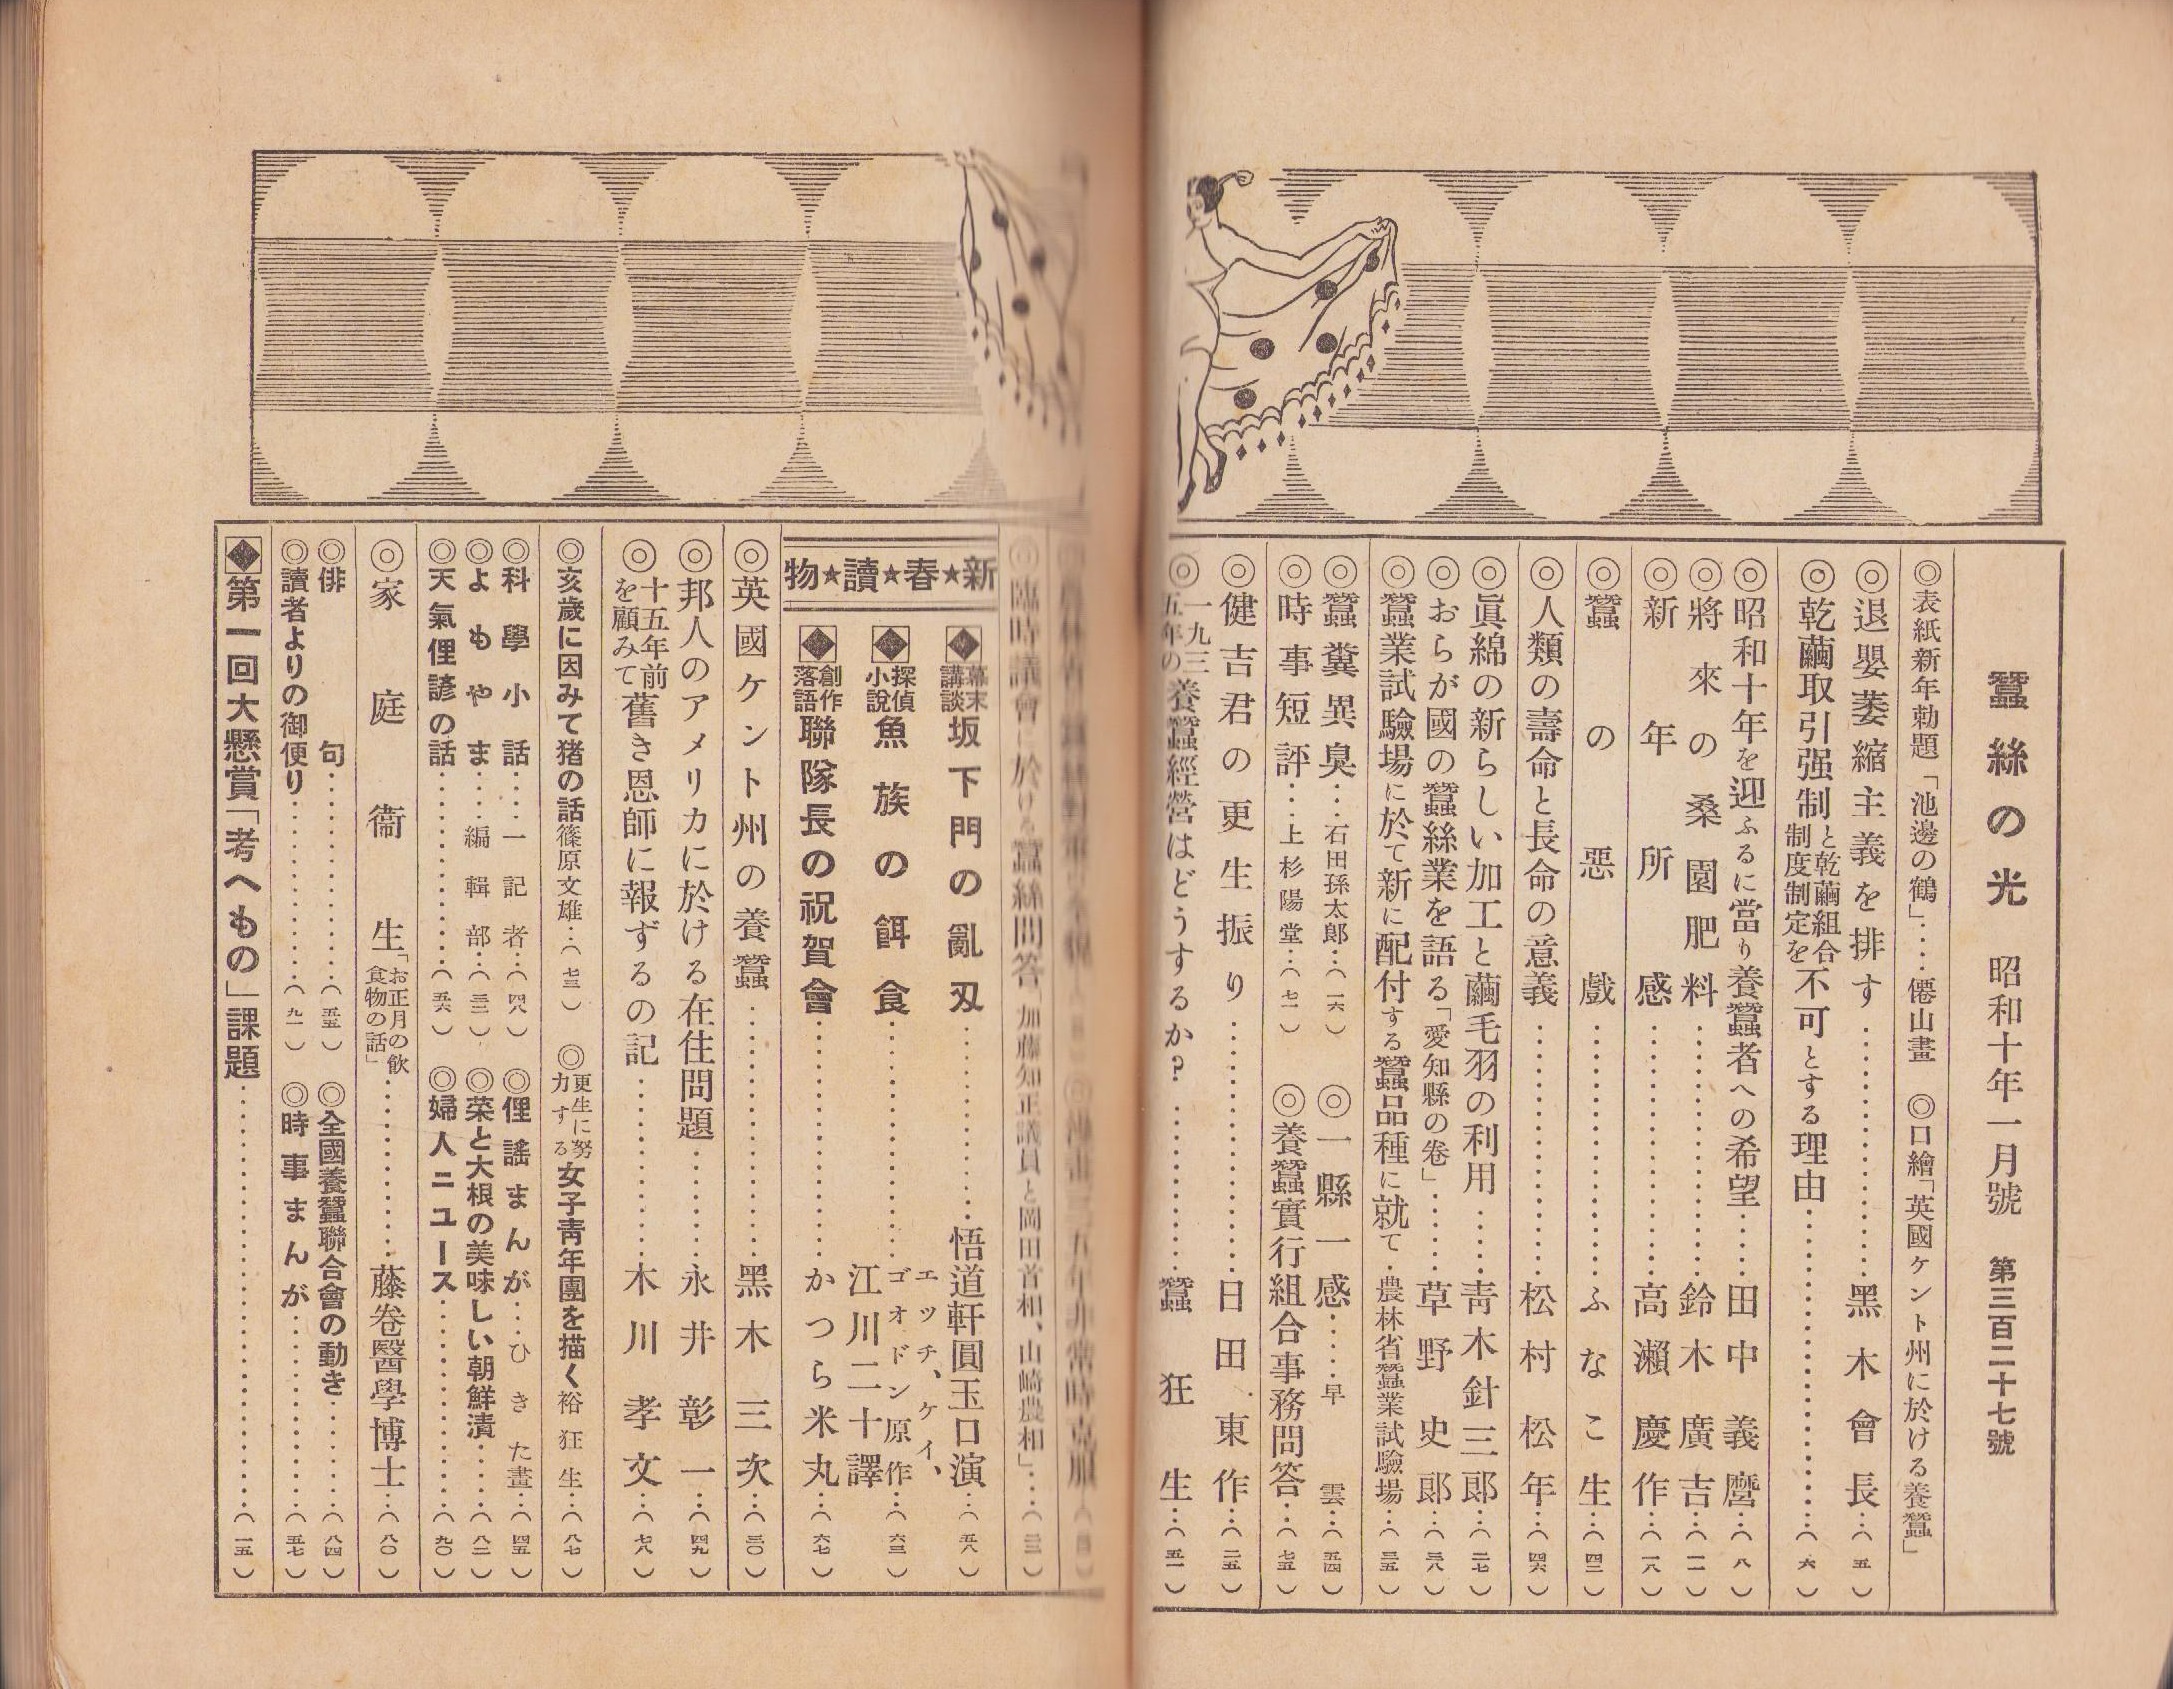 蠶絲の光 昭和十年一月號 第三百二十七號
◎表紙新年勅題「池邊の鶴」……僊山畫 ◎口繪「英國ケント州に於ける養蠶」
◎退嬰萎縮主義を排す……黑木會長…(五)
◎乾繭取引强制と乾繭組合制度制定を不可とする理由……(六)
◎昭和十年を迎ふるに當り養蠶者への希望……田中義麿…(八)
◎將來の桑園肥料……鈴木廣吉…(一一)
◎新年所感……高瀨慶作…(一八)
◎蠶の惡戲……ふなこ生…(四三)
◎人類の壽命と長命の意義……松村松年…(四六)
◎眞綿の新らしい加工と繭毛羽の利用……靑木針三郞…(二七)
◎おらが國の蠶絲業を語る「愛知縣の卷」……草野史郞…(三八)
◎蠶業試驗場に於て新に配付する蠶品種に就て…農林省蠶業試驗場…(三五)
◎蠶糞異臭…石田孫太郎…(一六) ◎一縣一感……早雲…(五四)
◎時事短評…上杉陽堂…(七一) ◎養蠶實行組合事務問答…(七五)
◎健吉君の更生振り……日田東作…(二五)
◎一九三五年の養蠶經營はどうするか?……蠶狂生…(五一)
◎臨時議會に於ける蠶絲問答「加藤知正議員と岡田首相、山崎農相」…
新★春★讀★物
◆幕末講談 坂下門の亂刄……悟道軒圓玉口演…(五八)
◆探偵小說 魚族の餌食……エッチ、ケイ、ゴオドン原作 江川二十譯…(六三)
◆創作落語 聯隊長の祝賀會……かつら米丸…(六七)
◎英國ケント州の養蠶……黑木三次…(三〇)
◎邦人のアメリカに於ける在住問題……永井彰一…(四九)
◎十五年前を顧みて舊き恩師に報ずるの記……木川孝文…(七八)
◎亥歲に因みて猪の話 篠原文雄…(七三) ◎更生に努力する女子靑年團を描く 裕狂生…(八七)
◎科學小話…一記者…(四八) ◎俚謠まんが…ひきた畫…(四五)
◎よもやま…編輯部…(三三) ◎菜と大根の美味しい朝鮮漬……(八二)
◎天氣俚諺の話……(五六) ◎婦人ニユース……(九〇)
◎家庭衞生「お正月の飮食物の話」……藤卷醫學博士…(八〇)
◎俳句……(五五) ◎全國養蠶聯合會の動き……(八四)
◎讀者よりの御便り……(九一) ◎時事まんが……(五七)
◆第一回大懸賞「考へもの」課題……(一五)